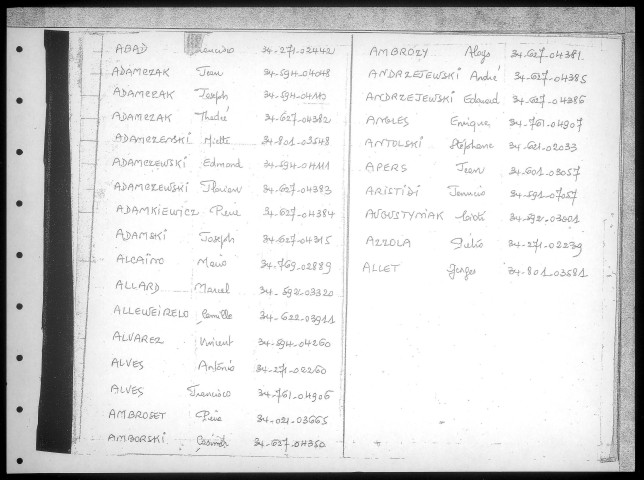 ABAD 34-271-02442
ADAMCZAK Jean 34-594-04048
ADAMCZAK Joseph 34-594-04112
ADAMCZAK Thadré 34-627-04382
ADAMCZENSKI 34-801-03548
ADAMCZEWSKI Edmond 34-594-04111
ADAMCZEWSKI Florian 34-627-04383
ADAMKIEWICZ Pierre 34-627-04384
ADAMSKI Joseph 34-627-04315
ALCAÏNO Mario 34-769-02889
ALLARD Marcel 34-592-03320
ALLEWEIRELD Camille 34-622-03911
ALVAREZ Vincent 34-594-04260
ALVES António 34-271-02260
ALVES Francisco 34-761-04906
AMBROSET Pierre 34-021-03665
AMBORSKI Casimir 34-627-04350
AMBROZY Aloys 34-627-04381
ANDRZEJEWSKI André 34-627-04385
ANDRZEJEWSKI Edouard 34-627-04386
ANGLES Enrique 34-761-04907
ANTOLSKI Stéphane 34-621-02033
APERS Jean 34-601-03057
ARISTIDI 34-591-07057
AUGUSTYNIAK 34-592-03601
AZZOLA 34-271-02239
ALLET Georges 34-801-03581